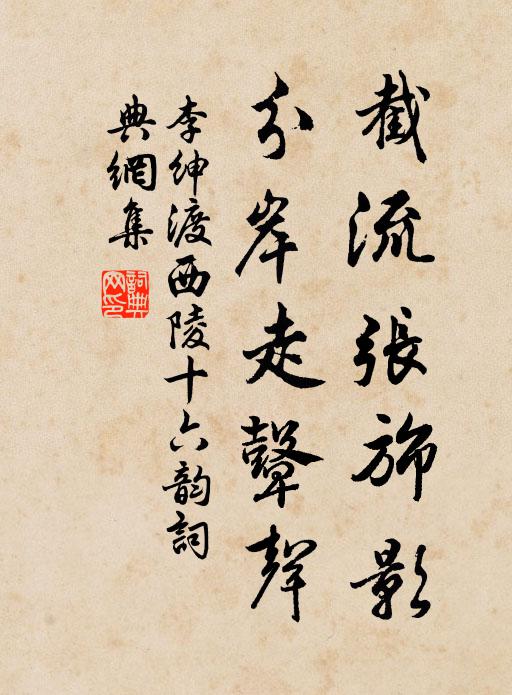 截流張旆影
分岸走鼙聲
李紳渡西陵十六韵詞
典網集
詞典网印